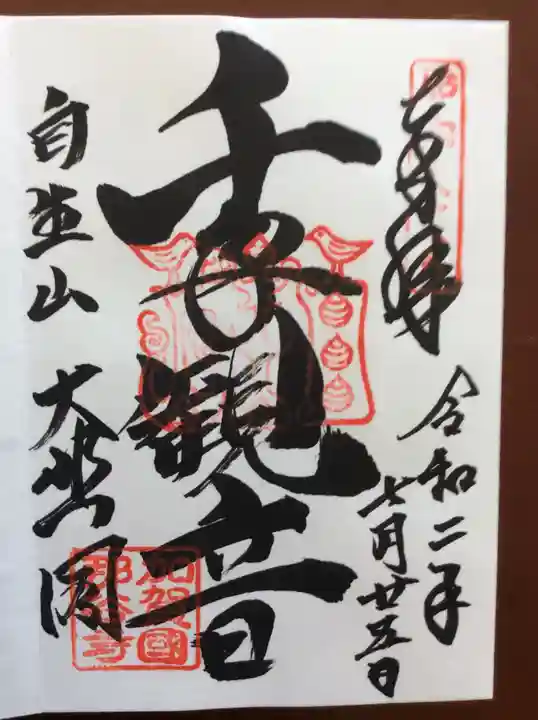 奉拝
令和二年
七月廿五日
千手観音
自生山
大悲閣
加賀國
那谷寺